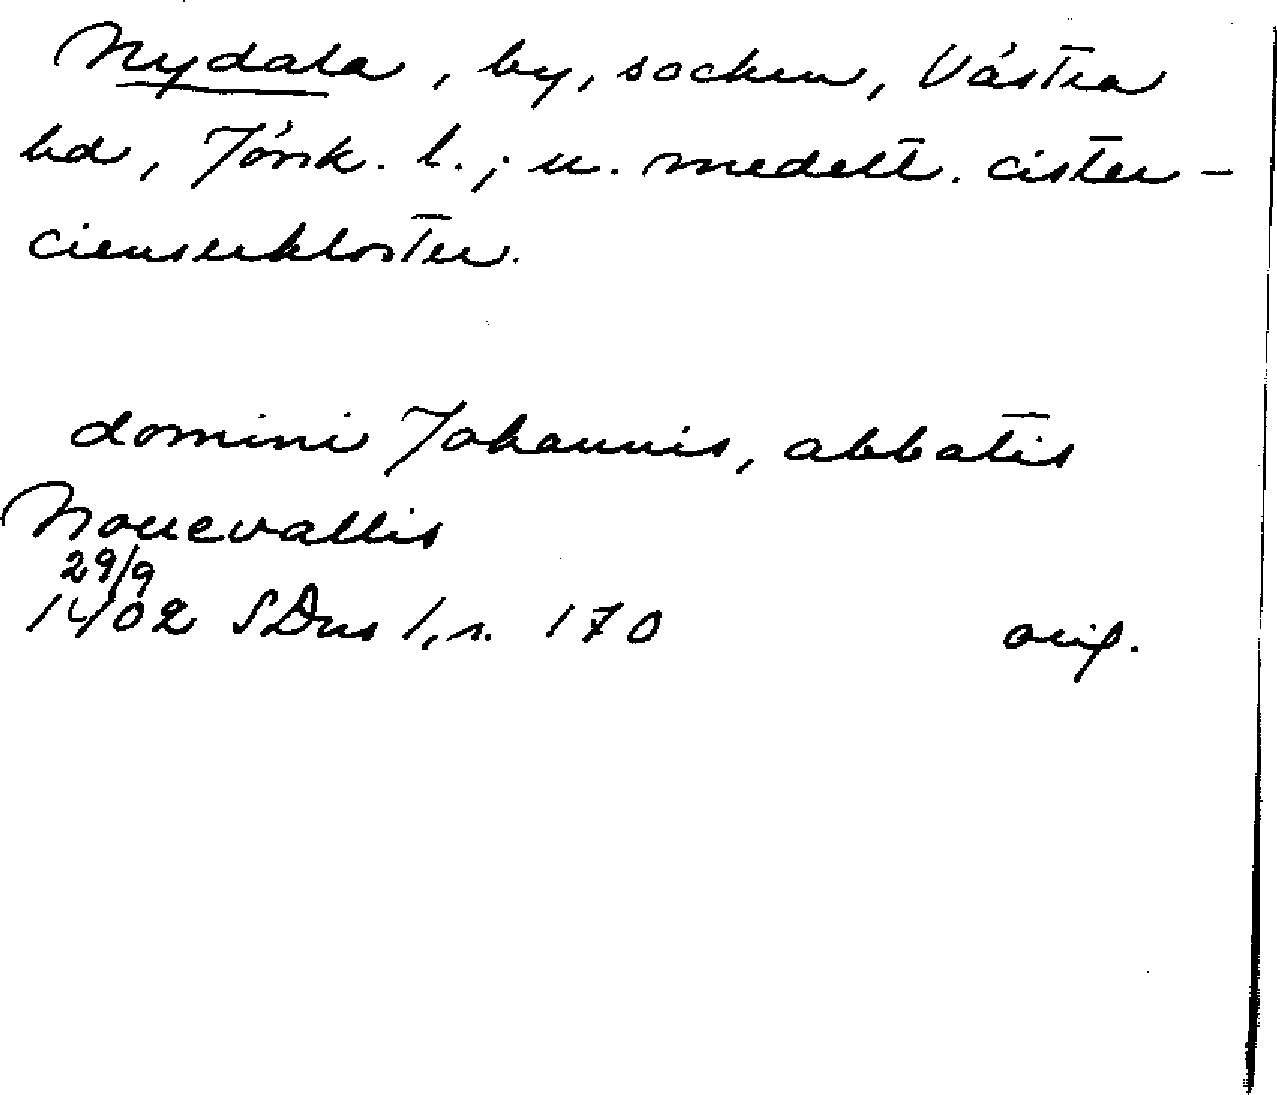 Nydala, by, socken, Västra
hd, Jönk. l.; u. medelt. cister-
cienserkloster.
domini Johannis, abbatis
Nouevallis
29/9
1402 SDns 1, s. 170 orig.